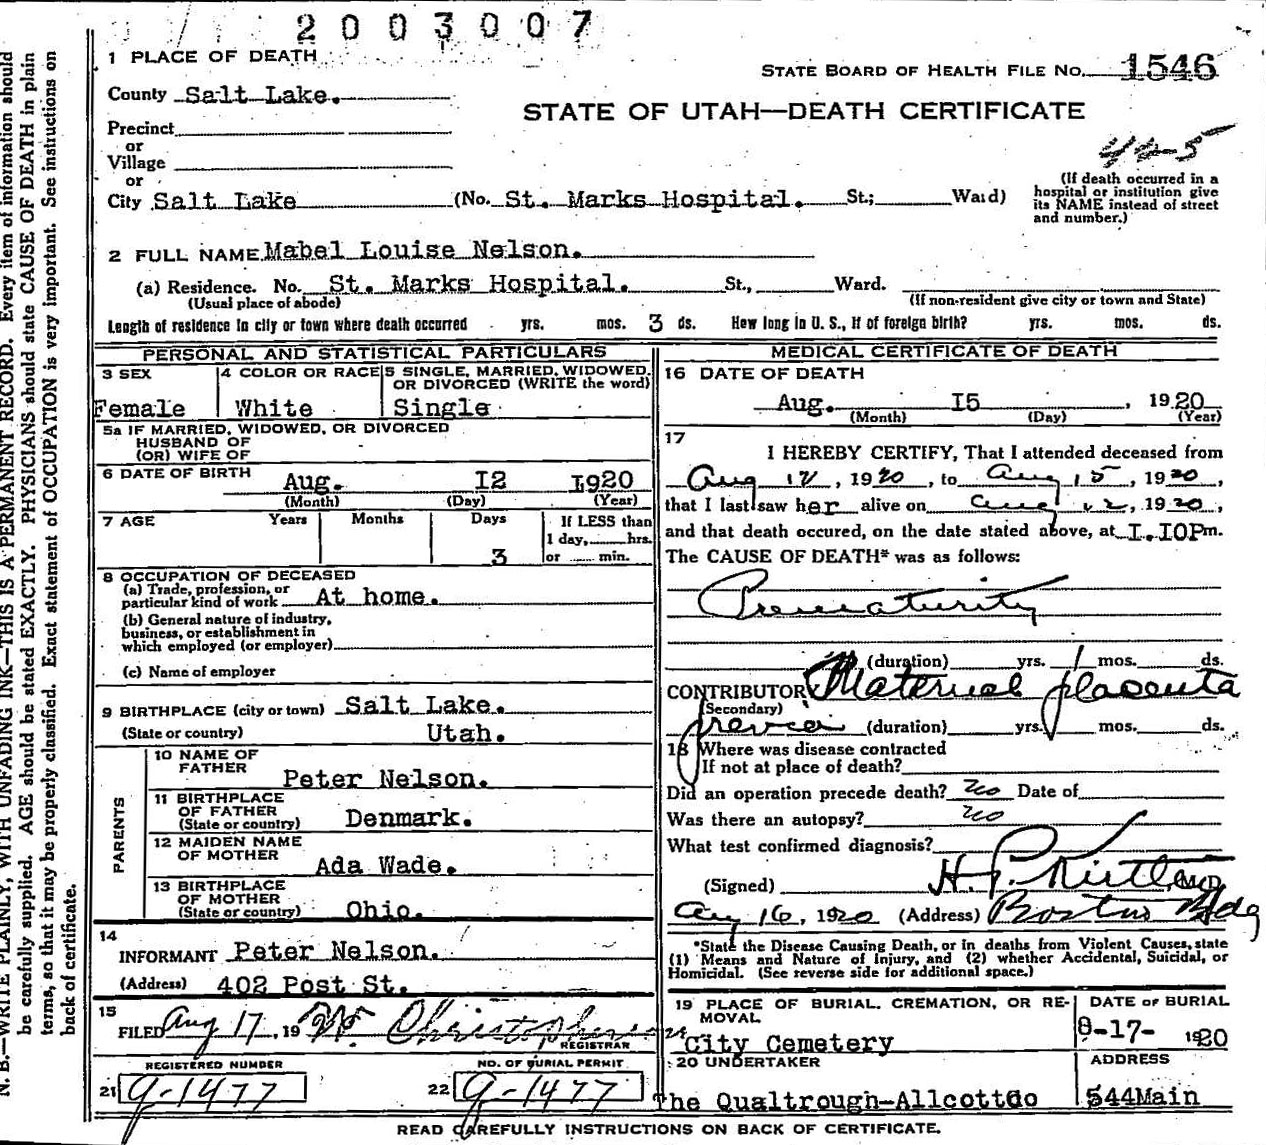 2003007
1 PLACE OF DEATH
STATE BOARD OF HEALTH FILE NO. 1546
County Salt Lake.
STATE OF UTAH—DEATH CERTIFICATE
Precinct
or
Village
or
City Salt Lake (No. St. Marks Hospital. St.; Ward)
(If death occurred in a
hospital or institution give
its NAME instead of street
and number.)
2 FULL NAME Mabel Louise Nelson.
(a) Residence. No. St. Marks Hospital. St., Ward.
(Usual place of abode) (If non-resident give city or town and State)
Length of residence in city or town where death occurred yrs. mos. 3 ds. How long in U. S., if of foreign birth? yrs. mos. ds.
PERSONAL AND STATISTICAL PARTICULARS
3 SEX 4 COLOR OR RACE 5 SINGLE, MARRIED, WIDOWED,
OR DIVORCED (WRITE the word)
Female White Single
5a IF MARRIED, WIDOWED, OR DIVORCED
HUSBAND OF
(OR) WIFE OF
6 DATE OF BIRTH Aug. I2 I920
(Month) (Day) (Year)
7 AGE Years Months Days If LESS than
1 day, hrs.
3 or min.
8 OCCUPATION OF DECEASED
(a) Trade, profession, or
particular kind of work At home.
(b) General nature of industry,
business, or establishment in
which employed (or employer)
(c) Name of employer
9 BIRTHPLACE (city or town) Salt Lake.
(State or country) Utah.
PARENTS
10 NAME OF
FATHER Peter Nelson.
11 BIRTHPLACE
OF FATHER
(State or country) Denmark.
12 MAIDEN NAME
OF MOTHER Ada Wade.
13 BIRTHPLACE
OF MOTHER
(State or country) Ohio.
14
INFORMANT Peter Nelson.
(Address) 402 Post St.
15
FILED Aug 17, 19
REGISTRAR
REGISTERED NUMBER NO. OF BURIAL PERMIT
21 g-1477 22 g-1477
MEDICAL CERTIFICATE OF DEATH
16 DATE OF DEATH
Aug. I5, 1920
(Month) (Day) (Year)
17
I HEREBY CERTIFY, That I attended deceased from
Aug 12, 1920, to Aug 15, 1920,
that I last saw her alive on Aug 12, 1920,
and that death occured, on the date stated above, at I.I0Pm.
The CAUSE OF DEATH* was as follows:
Prematurity
(duration) yrs. 1 mos. ds.
CONTRIBUTORY Maternal placenta
(Secondary)
previa (duration) yrs. mos. ds.
18 Where was disease contracted
If not at place of death?
Did an operation precede death? no Date of
Was there an autopsy? no
What test confirmed diagnosis?
(Signed) H. P. Kirtland, M.D
Aug 16, 1920 (Address) Boston Bldg
*State the Disease Causing Death, or in deaths from Violent Causes, state
(1) Means and Nature of Injury, and (2) whether Accidental, Suicidal, or
Homicidal. (See reverse side for additional space.)
19 PLACE OF BURIAL, CREMATION, OR RE- DATE OF BURIAL
MOVAL
City Cemetery 8-17- 1920
20 UNDERTAKER ADDRESS
The Qualtrough-Allcott Co 544Main
READ CAREFULLY INSTRUCTIONS ON BACK OF CERTIFICATE.
N. B.—WRITE PLAINLY, WITH UNFADING INK—THIS IS A PERMANENT RECORD. Every item of information should
be carefully supplied. AGE should be stated EXACTLY. PHYSICIANS should state CAUSE OF DEATH in plain
terms, so that it may be properly classified. Exact statement of OCCUPATION is very important. See instructions on
back of certificate.